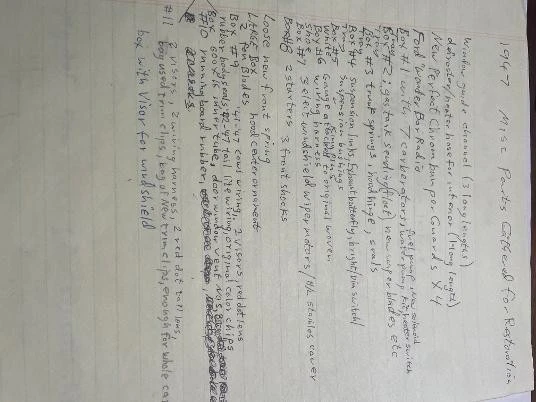 1947 Misc Parts Gathered for Restoration
window guide channel (3 long lengths)
defroster/heater hose for interior (1 long length)
New Perfect Chrome bumper Guards x4
Ford Wonder Bar Radio
fuel pump, overdrive solenoid
Box #1 with 7 carberators, water pump kit, heater switch
Box #2 gas tank sending (float) new wiper blades etc
Box #3 trunk springs, hood hinge, seals
Tray
Box #4 suspension links, Exhaust butterfly, bright/dim switch/
Tray suspension bushings
Box #5 King pins
white Gauge to original woven
Box #6 wiring harness
Shoe
Box #7 3 elect windshield wiper motors / stainless cover
Box #8 2 starters 3 front shocks
Loose new front spring
LARGE Box hood center ornament
2 fan Blades
Box #9 41-47 cowl wiring, 2 visors red dot lens
rubber body seals, 42-47 tail lite wiring, original color chips
Box 600x16 inner tube, door window vent NOS,
#10 running board rubber,
#11 2 visors, 2 wiring harness, 2 red dot tail lens
bag used trim clips, bag of New trim clips, enough for whole car
box with Visor for windshield